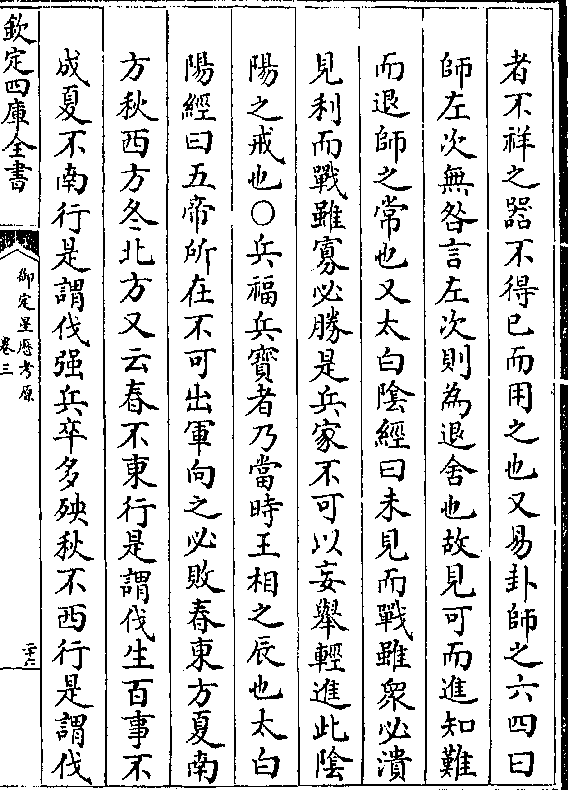 者不祥之器不得已而用之也又易卦師之六四曰
師左次無咎言左次則為退舍也故見可而進知難
而退師之常也又太白陰經曰未見而戰雖衆必潰
見利而戰雖寡必勝是兵家不可以妄舉輕進此陰
陽之戒也○兵福兵寳者乃當時王相之辰也太白
陽經曰五帝所在不可出軍向之必敗春東方夏南
方秋西方冬北方又云春不東行是謂伐生百事不
成夏不南行是謂伐强兵卒多殃秋不西行是謂伐
欽定四庫全書
御定星厯考原
卷三
二十六